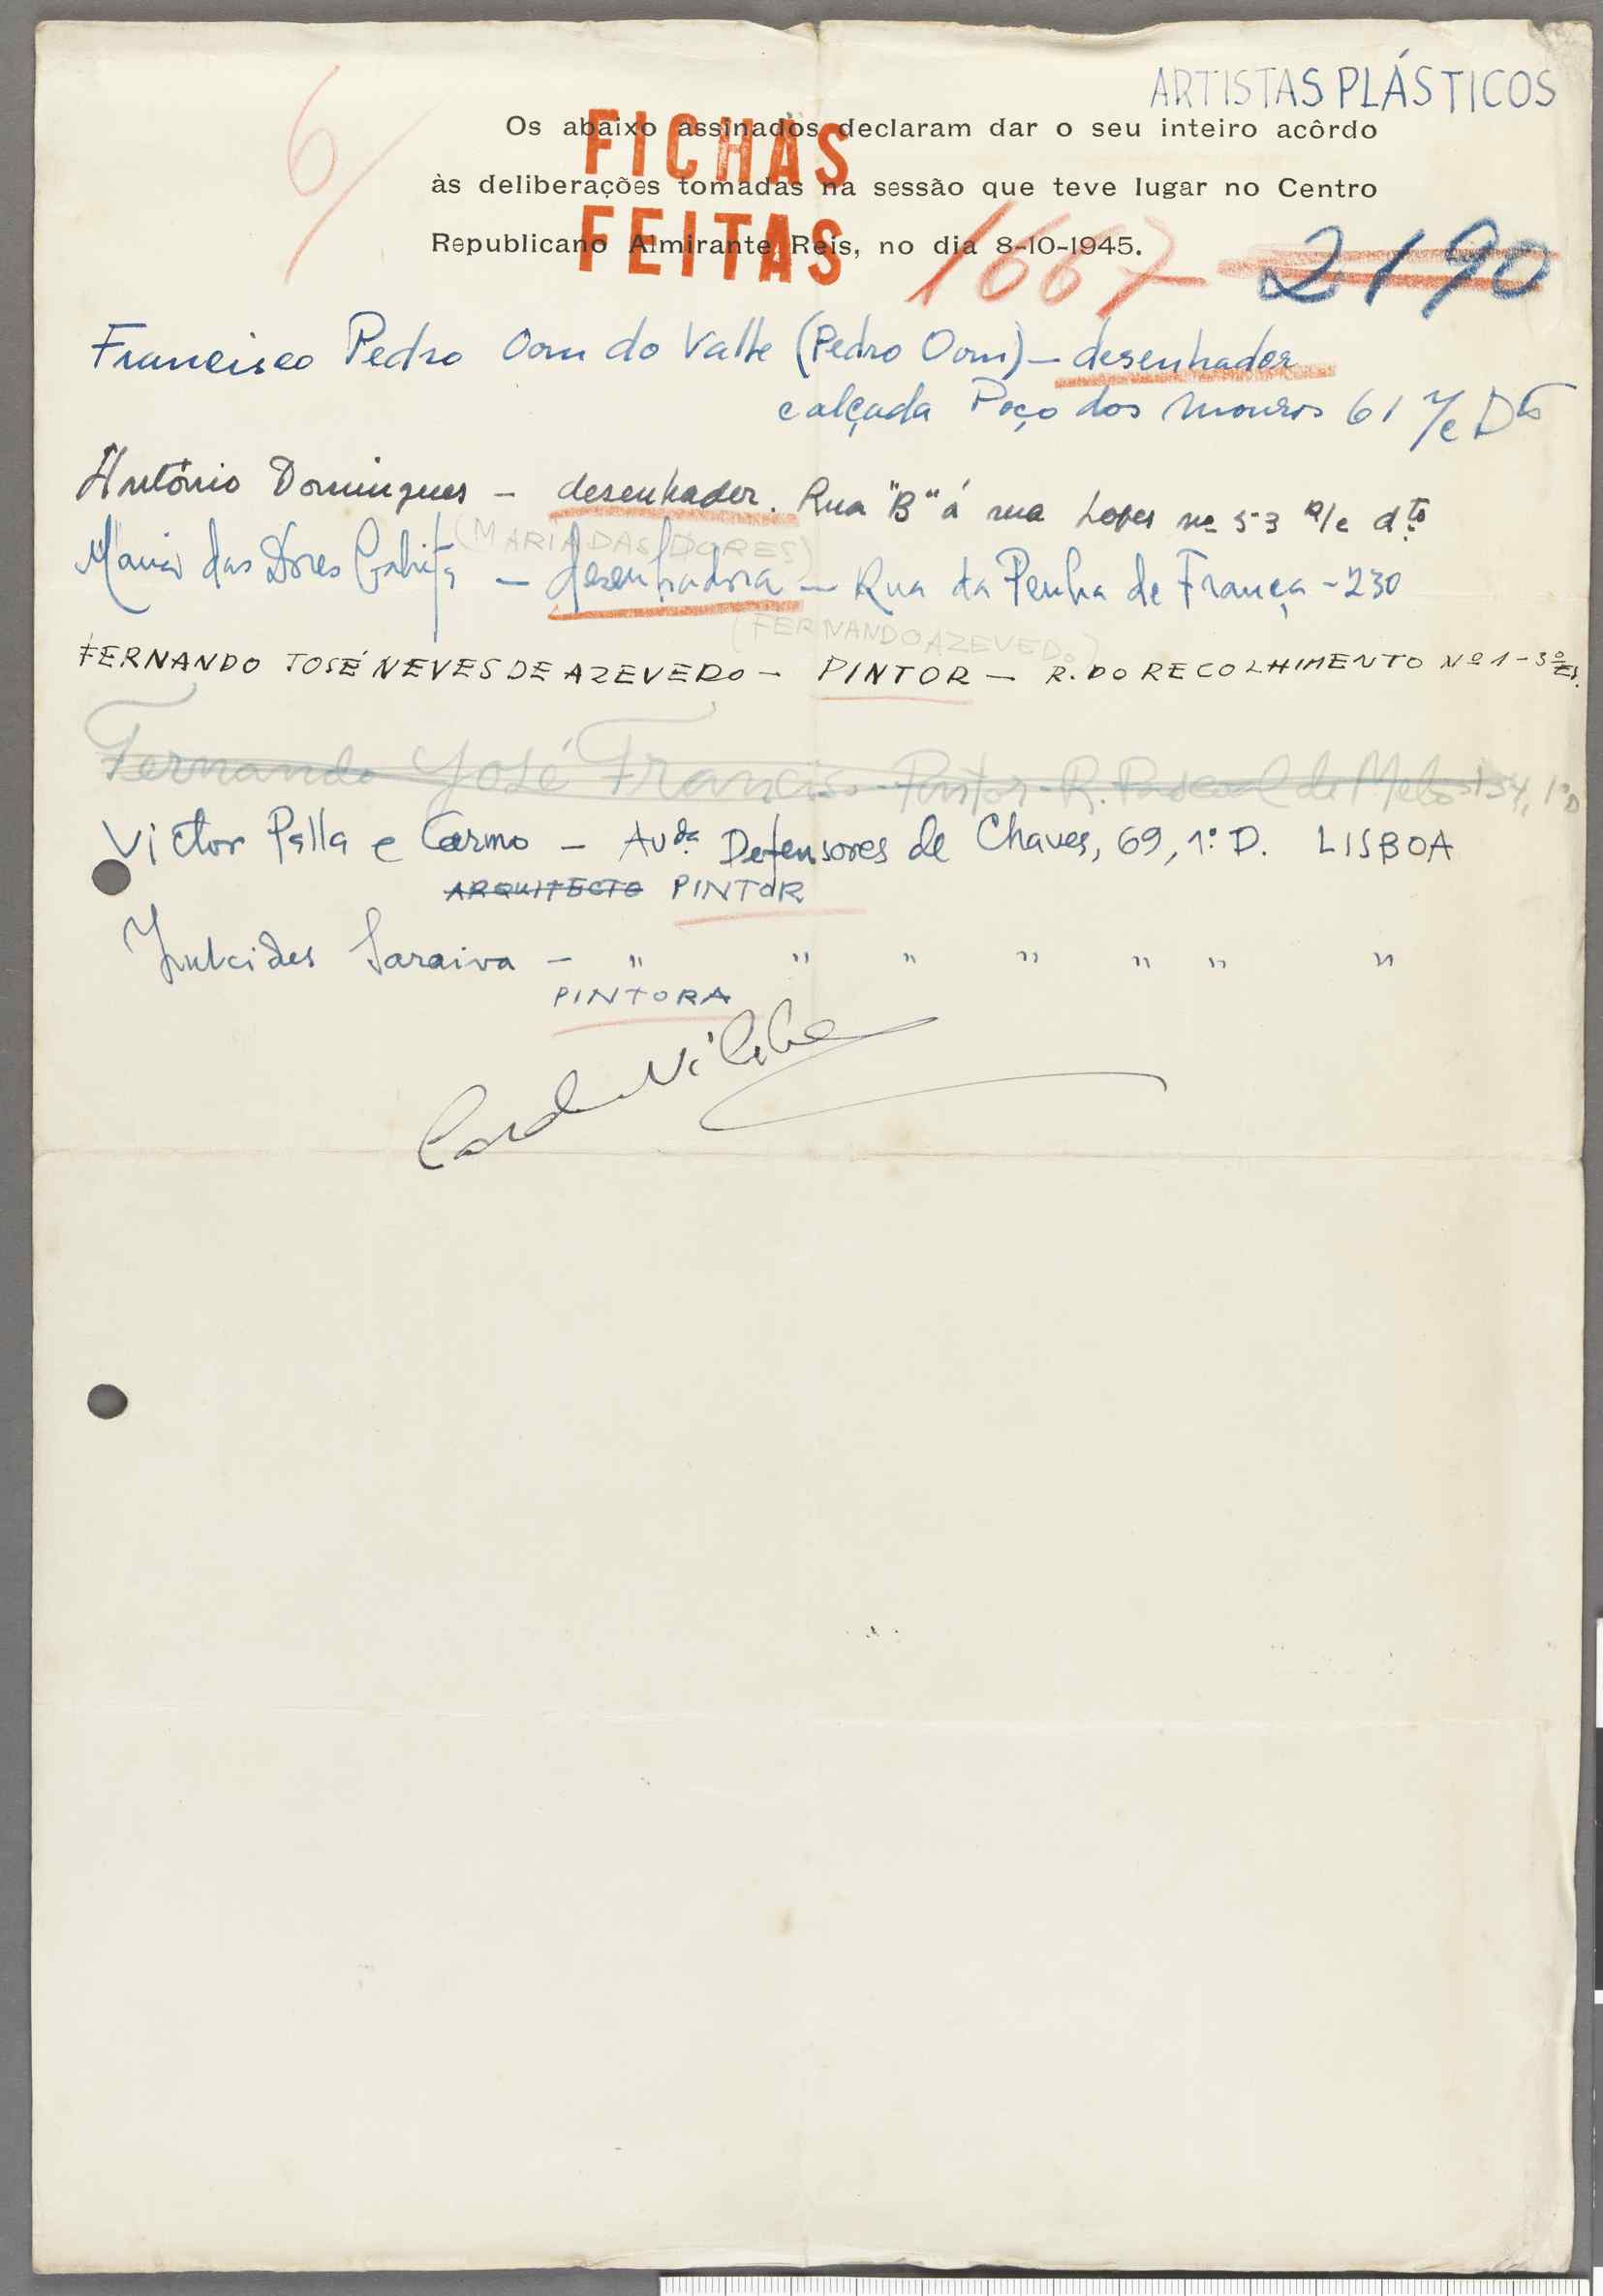 ARTISTAS PLÁSTICOS
6/
Os abaixo assinados declaram dar o seu inteiro acôrdo
FICHAS
às deliberações tomadas na sessão que teve lugar no Centro
FEITAS
Republicano Almirante Reis, no dia 8-10-1945.
1667 2190
Francisco Pedro Oom do Valle (Pedro Oom) – desenhador
calçada Poço dos Mouros 61 r/c Dto
António Domingues – desenhador. Rua "B" á rua Lopes nº 53 r/c dto
(MARIA DAS DORES)
Maria das Dores – desenhadora – Rua da Penha de França - 230
(FERNANDO AZEVEDO)
FERNANDO JOSÉ NEVES DE AZEVEDO – PINTOR – R. DO RECOLHIMENTO Nº 1 - 3º Es.
Fernando José Francisco - Pintor - R. Pascoal de Melo 154, 1º D
Victor Palla e Carmo – Avda Defensores de Chaves, 69, 1º D. LISBOA
ARQUITECTO PINTOR
Zulcides Saraiva – " " " " " " "
PINTORA